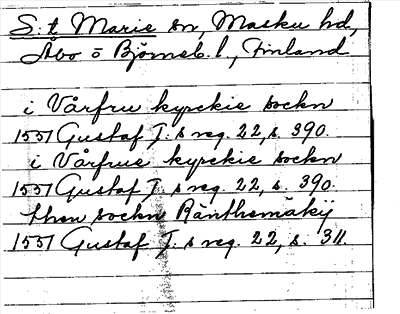 S:t Marie sn, Masku hd,
Åbo o Björneb. l., Finland
i Vårfru kyrckie sockn
1551 Gustaf I: s reg. 22, s. 390.
i Vårfrue kyrckie sockn
1551 Gustaf I: s reg. 22, s. 390.
then sockn Ränthemäky
1551 Gustaf I: s reg. 22, s. 311.